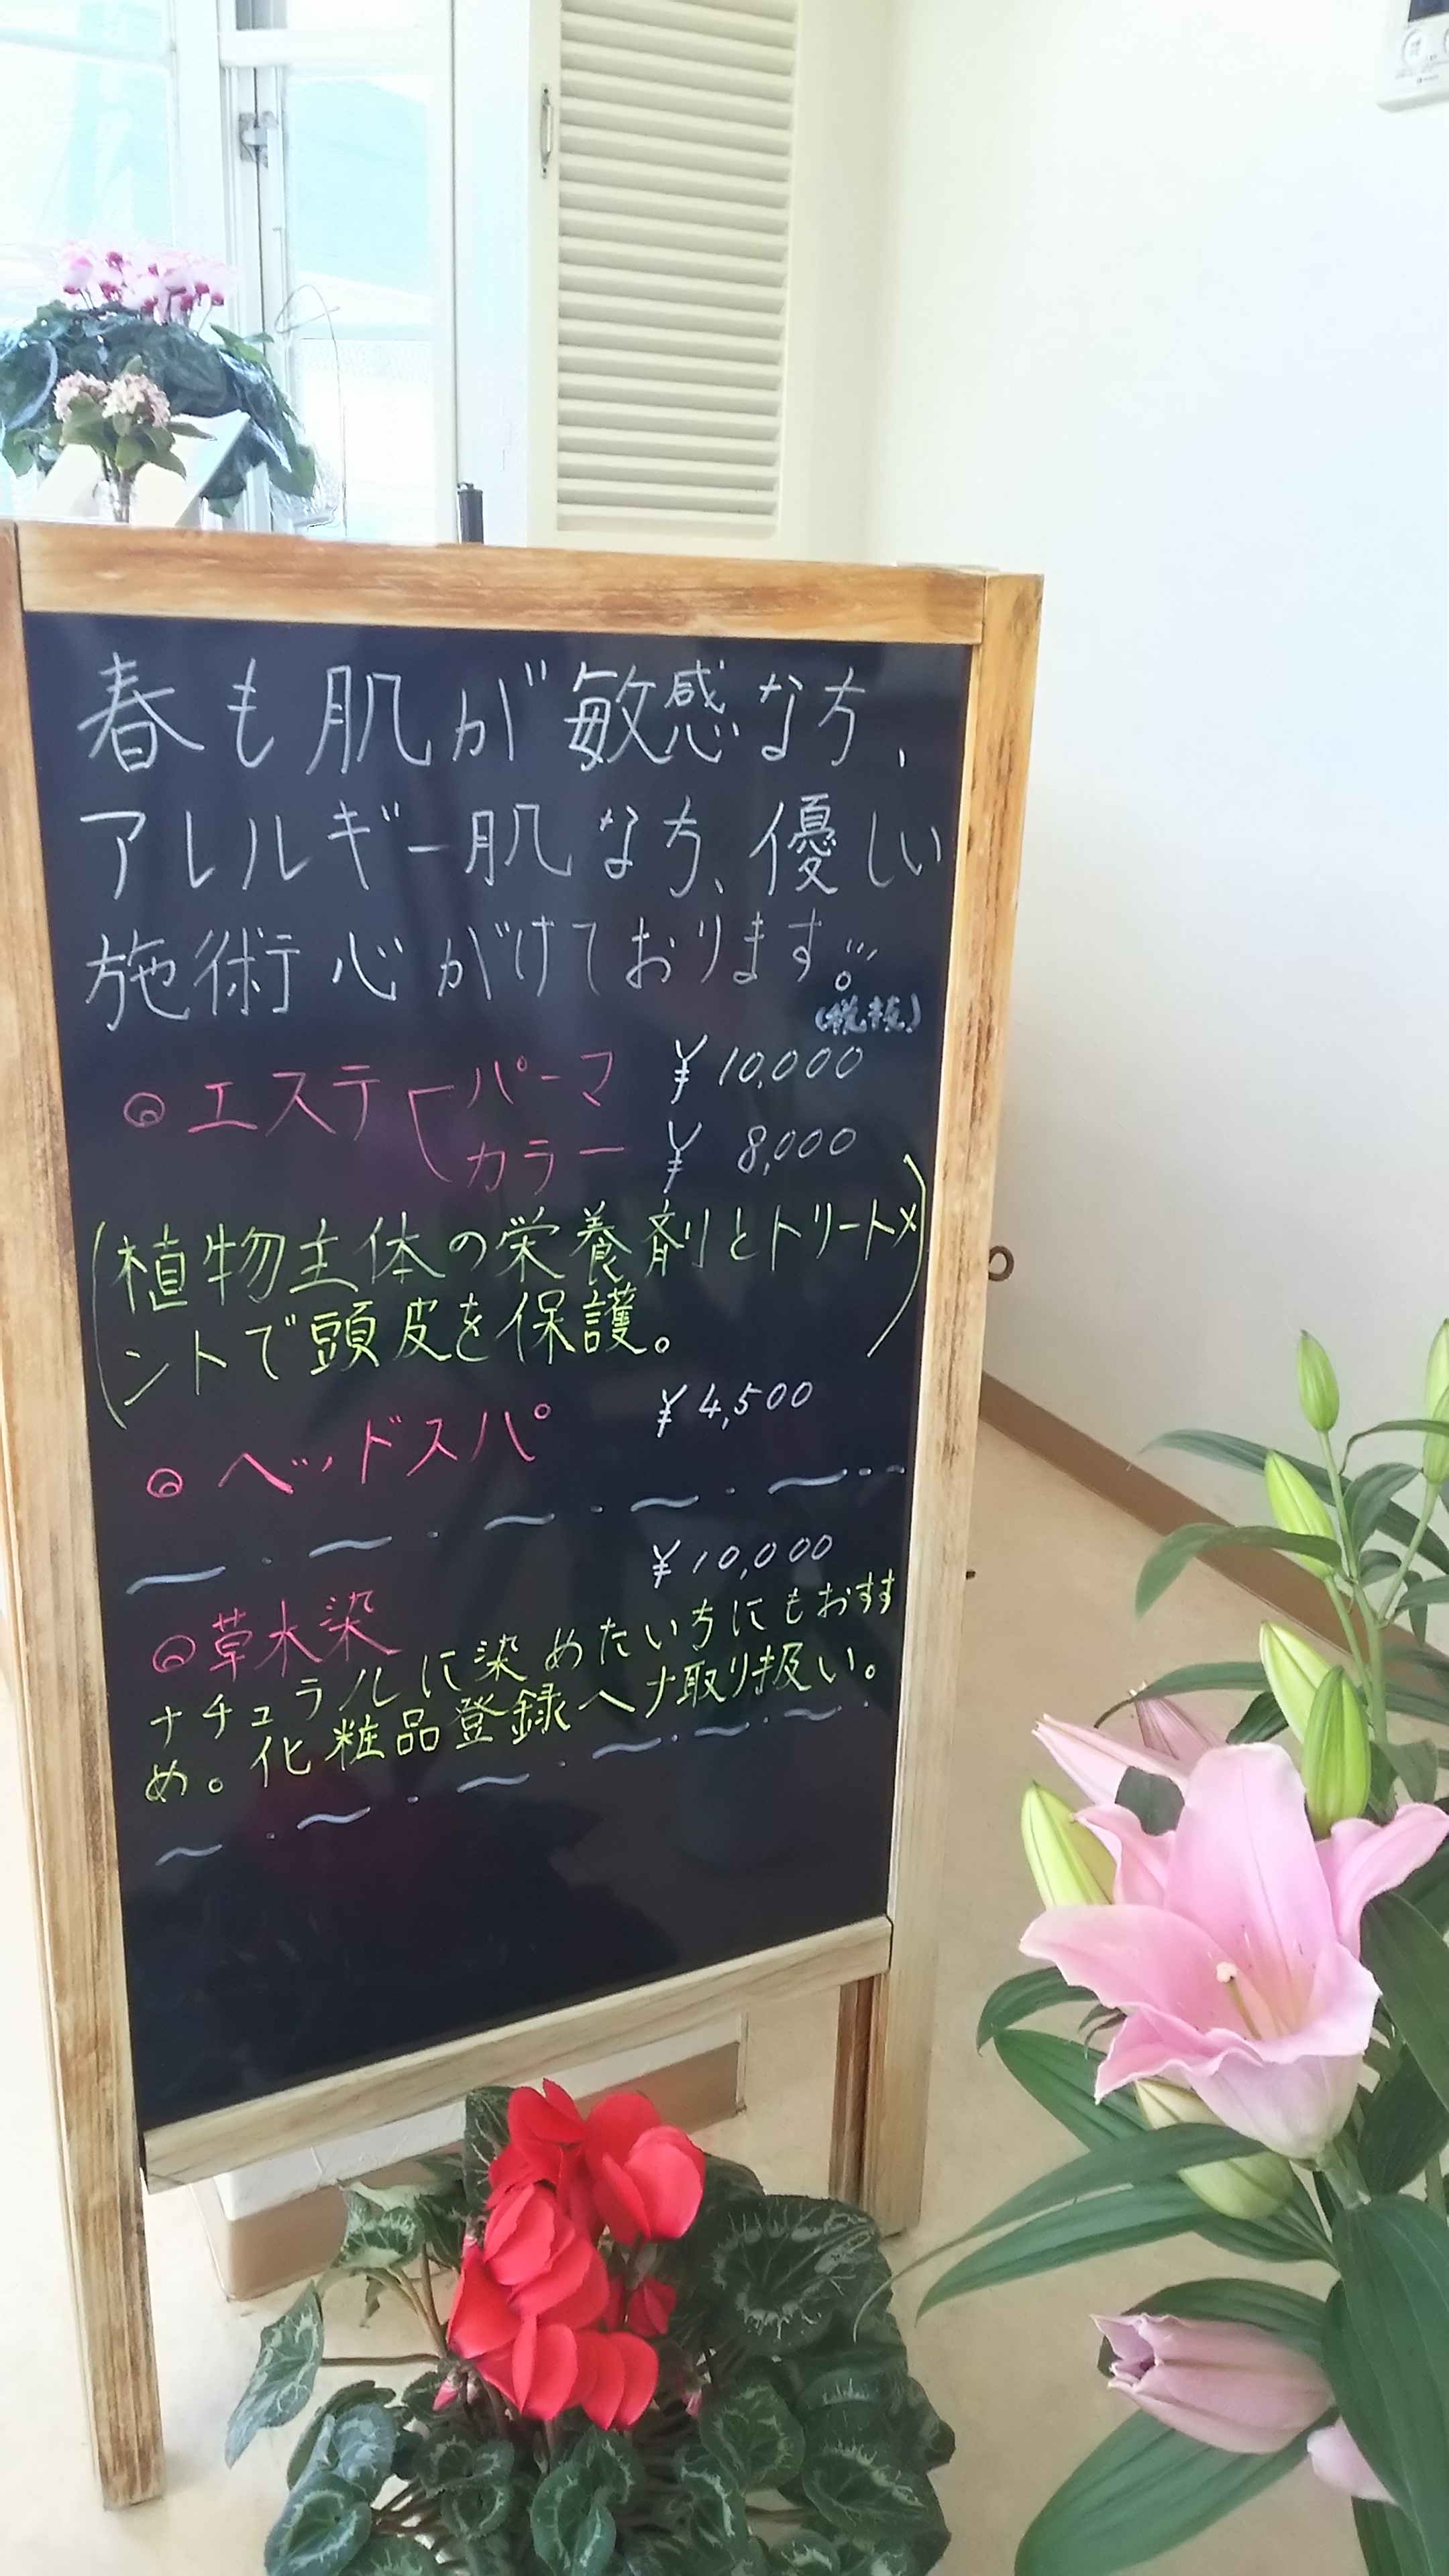 春も肌が敏感な方、
アレルギー肌な方、優しい
施術心がけております。
(税抜)
◎エステ パーマ ¥10,000
カラー ¥ 8,000
(植物主体の栄養剤とトリートメ
ントで頭皮を保護。)
◎ヘッドスパ ¥4,500
◎草木染 ¥10,000
ナチュラルに染めたい方にもおすす
め。化粧品登録ヘナ取り扱い。